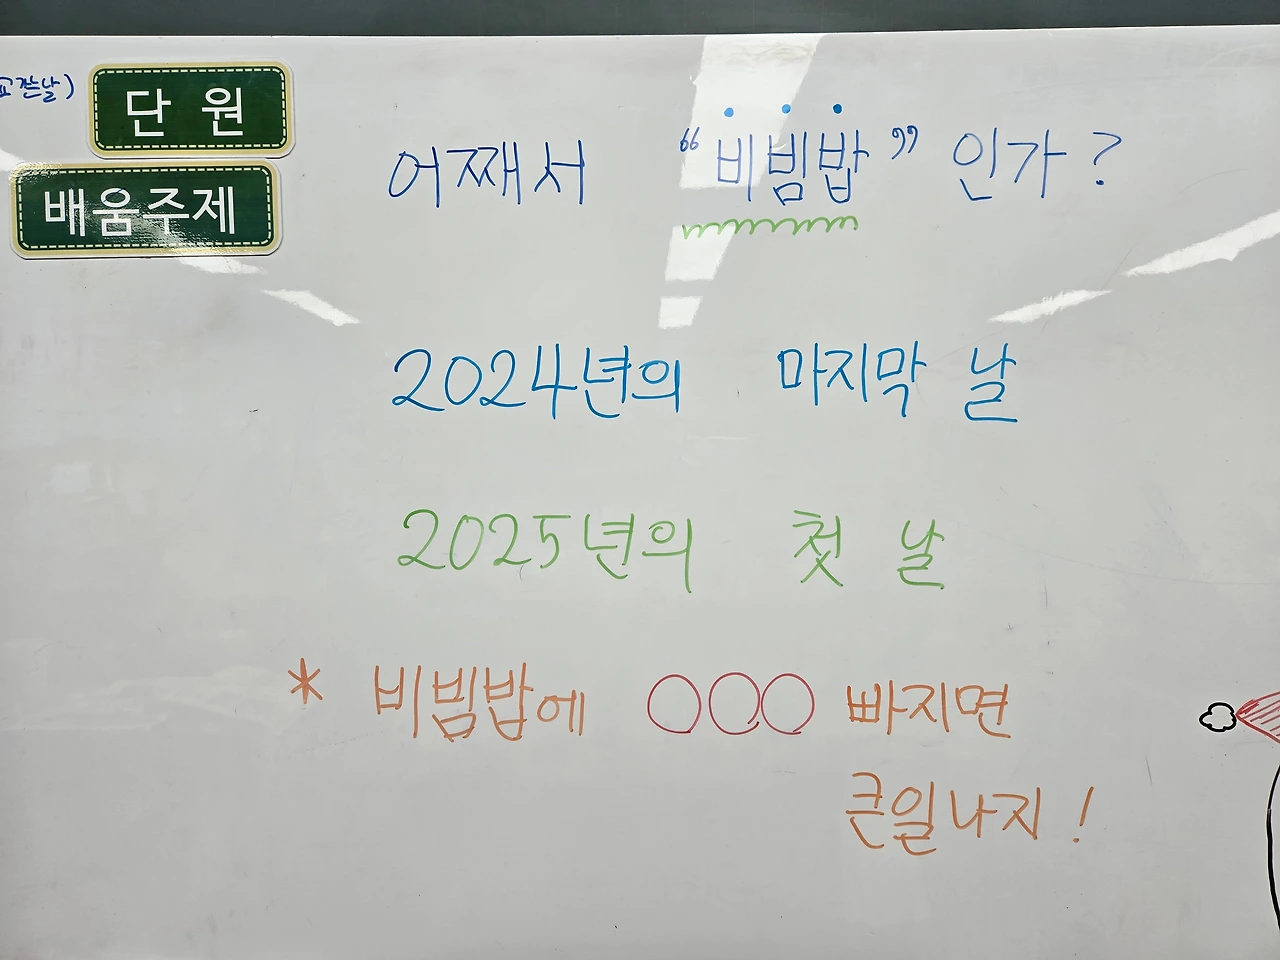 단 원
배움주제
어째서 “비빔밥” 인가?
2024년의 마지막 날
2025년의 첫 날
* 비빔밥에 ○○○ 빠지면
큰일나지!